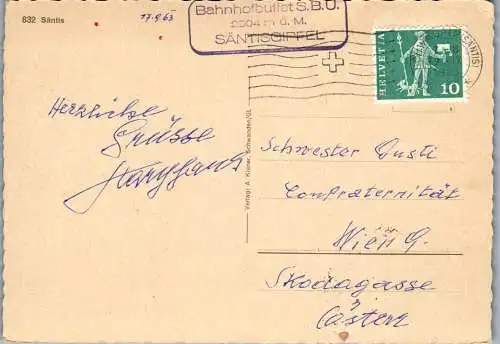 832 Säntis
17.9.63
Bahnhofbuffet S.B.U.
2504 m ü. M.
SÄNTISGIPFEL
HELVETIA
10
SÄNTIS
Herzliche
Grüsse
Schwester Gusti
Confraternität
Wien 9.
Skodagasse
Österr
Verlag: A. Kürner, Schwanden/Gl.